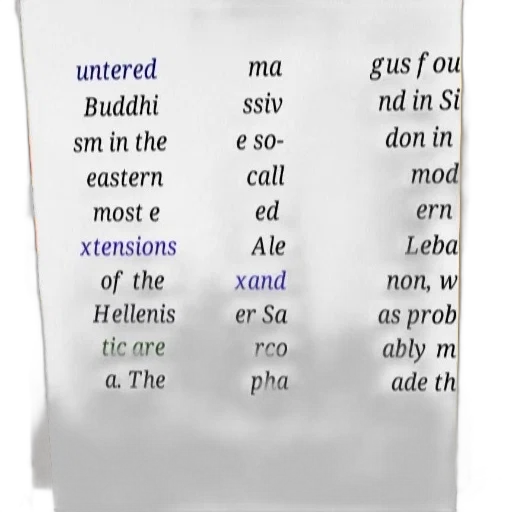 untered
Buddhi
sm in the
eastern
most e
xtensions
of the
Hellenis
tic are
a. The
ma
ssiv
e so-
call
ed
Ale
xand
er Sa
rco
pha
gus fou
nd in Si
don in
mod
ern
Leba
non, w
as prob
ably m
ade th